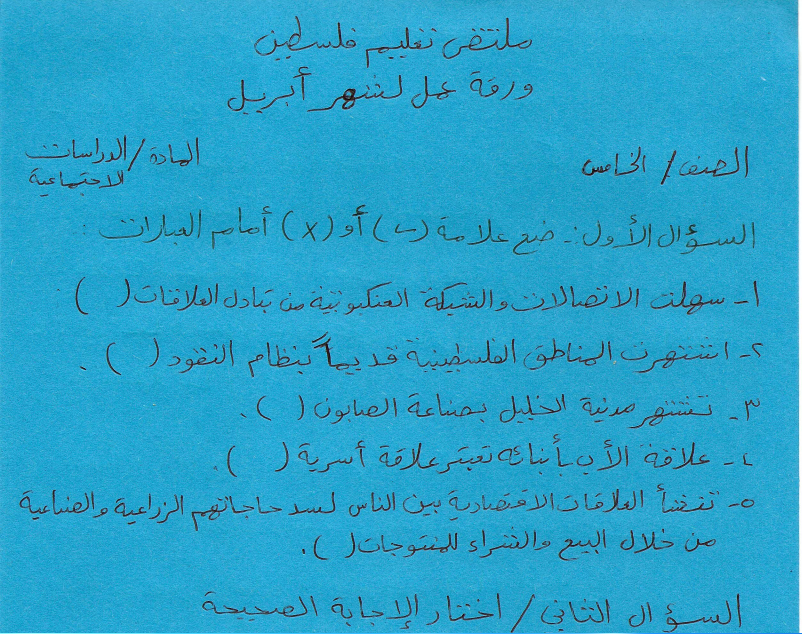 ملتقى تعليم فلسطين
ورقة عمل لشهر أبريل
الصف / الخامس المادة / الدراسات الاجتماعية
السؤال الأول :- ضع علامة (✓) أو (X) أمام العبارات :
١- سهلت الاتصالات والشبكة العنكبوتية من تبادل العلاقات ( )
٢- اشتهرت المناطق الفلسطينية قديماً بنظام النقود ( ) .
٣- تشتهر مدينة الخليل بصناعة الصابون ( ) .
٤- علاقة الأب بأبنائه تعتبر علاقة أسرية ( ) .
٥- تنشأ العلاقات الاقتصادية بين الناس لسد حاجاتهم الزراعية والصناعية
من خلال البيع والشراء للمنتوجات ( ) .
السؤال الثاني / اختار الإجابة الصحيحة